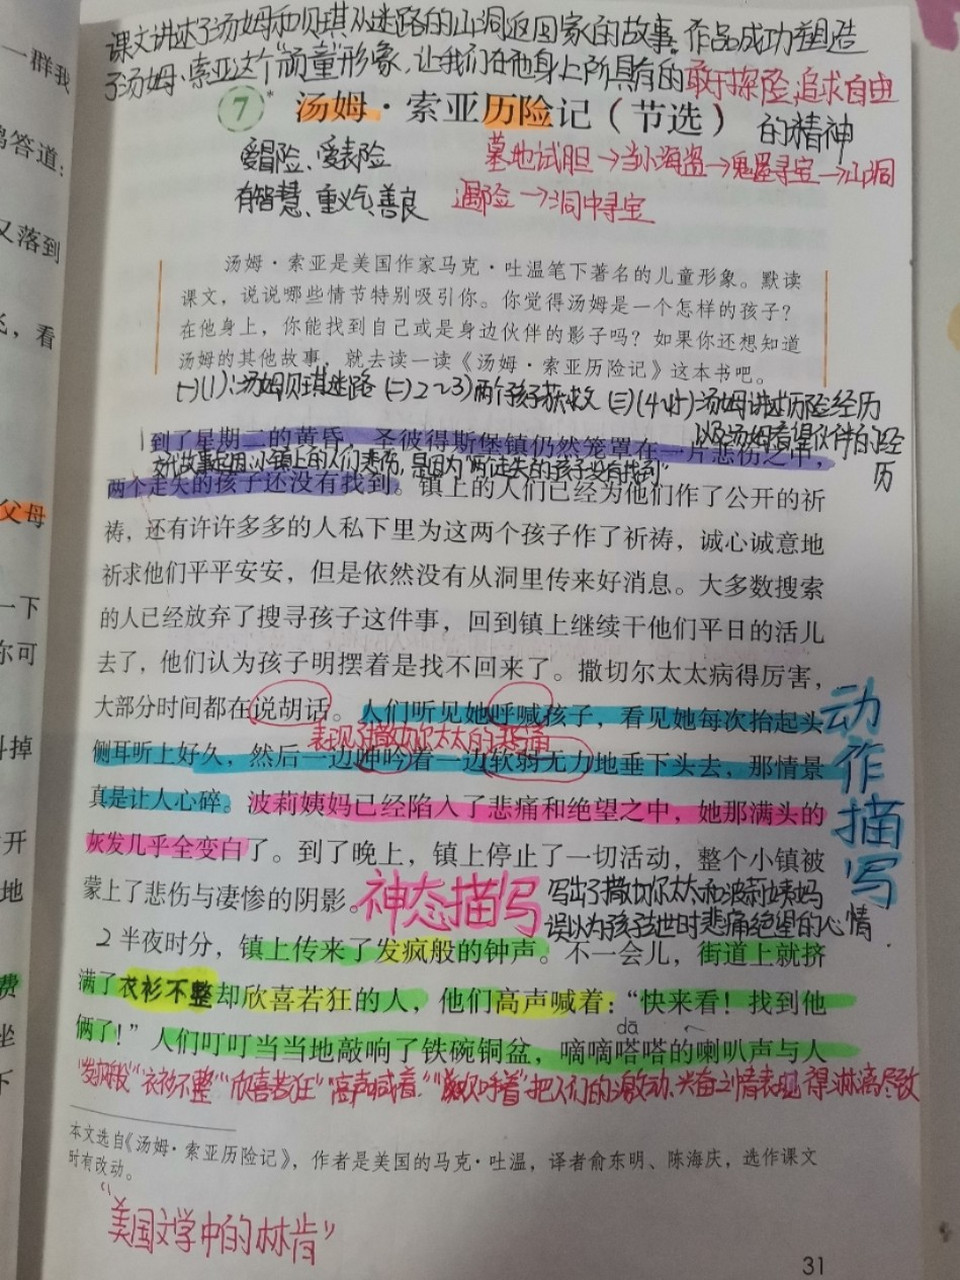 课文讲述了汤姆和贝琪从迷路的山洞返回家的故事。作品成功塑造
了汤姆·索亚这个"顽童"形象,让我们在他身上所具有的敢于探险,追求自由
的精神
7* 汤姆·索亚历险记(节选)
爱冒险、爱表险
有智慧、重义气、善良
墓地试胆→当小海盗→鬼屋寻宝→山洞
遇险→洞中寻宝
汤姆·索亚是美国作家马克·吐温笔下著名的儿童形象。默读
课文,说说哪些情节特别吸引你。你觉得汤姆是一个怎样的孩子?
在他身上,你能找到自己或是身边伙伴的影子吗?如果你还想知道
汤姆的其他故事,就去读一读《汤姆·索亚历险记》这本书吧。
(一)(1):汤姆贝琪迷路 (二)2~3)两个孩子获救 (三)(4~ 汤姆讲述历险经历
以及汤姆看望伙伴的经
历
1到了星期二的黄昏,圣彼得斯堡镇仍然笼罩在一片悲伤之中,
交代故事起因:小镇上的人们悲伤,是因为"两个走失的孩子没有找到"
两个走失的孩子还没有找到。镇上的人们已经为他们作了公开的祈
祷,还有许许多多的人私下里为这两个孩子作了祈祷,诚心诚意地
祈求他们平平安安,但是依然没有从洞里传来好消息。大多数搜索
的人已经放弃了搜寻孩子这件事,回到镇上继续干他们平日的活儿
去了,他们认为孩子明摆着是找不回来了。撒切尔太太病得厉害,
大部分时间都在说胡话。人们听见她呼喊孩子,看见她每次抬起头
表现了撒切尔太太的悲痛
侧耳听上好久,然后一边呻吟着一边软弱无力地垂下头去,那情景
真是让人心碎。波莉姨妈已经陷入了悲痛和绝望之中,她那满头的
灰发几乎全变白了。到了晚上,镇上停止了一切活动,整个小镇被
蒙上了悲伤与凄惨的阴影。
动作描写
神态描写
写出了撒切尔太太和波莉姨妈
误以为孩子去世时悲痛绝望的心情
2半夜时分,镇上传来了发疯般的钟声。不一会儿,街道上就挤
满了衣衫不整却欣喜若狂的人,他们高声喊着:"快来看!找到他
俩了!"人们叮叮当当地敲响了铁碗铜盆,嘀嘀嗒嗒的喇叭声与人
dā
"发疯般""衣衫不整""欣喜若狂""高声喊着""欢呼着"把人们的激动、兴奋之情表现得淋漓尽致
本文选自《汤姆·索亚历险记》,作者是美国的马克·吐温,译者俞东明、陈海庆,选作课文
时有改动。
"美国文学中的林肯"
31
一群我
鸟答道:
又落到
飞,看
父母
一下
你可
掉
开
地
费
坐
下